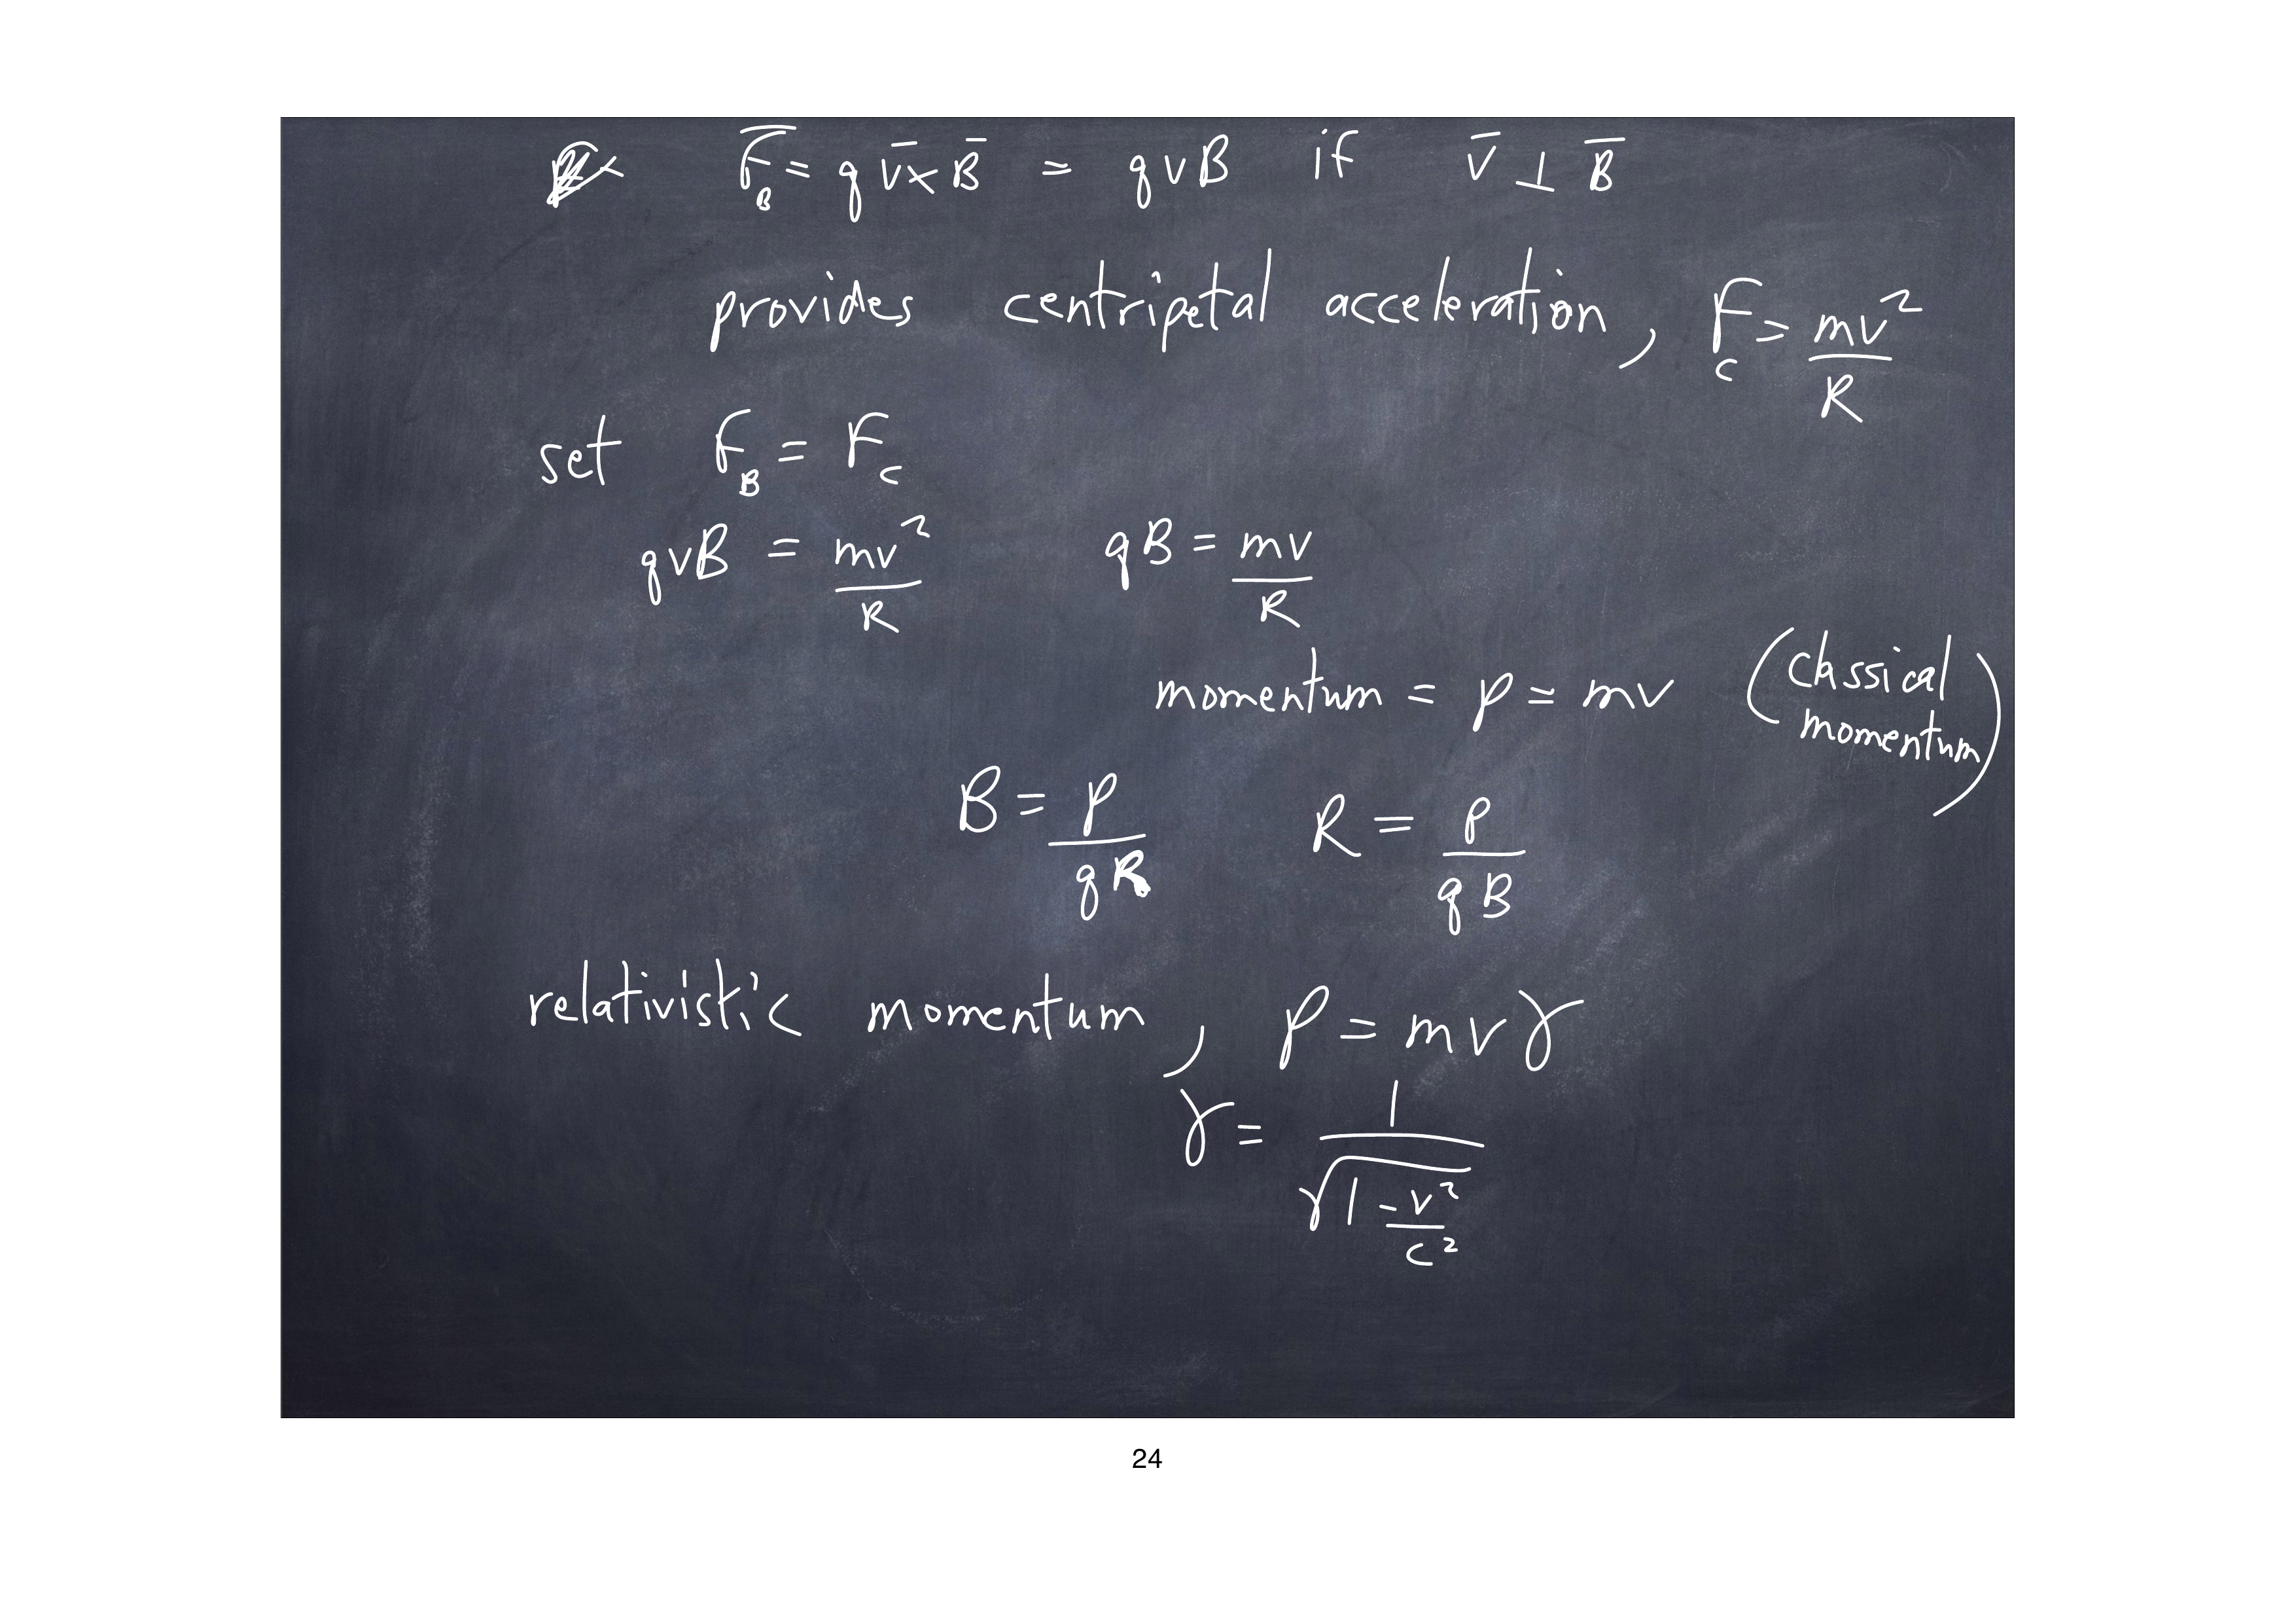 F̅_B = q v̅ × B̅ = qvB if v̅ ⊥ B̅
provides centripetal acceleration, F_c = mv²/R
set F_B = F_c
qvB = mv²/R qB = mv/R
momentum = p = mv (classical momentum)
B = p/qR R = p/qB
relativistic momentum, p = mvγ
γ = 1/√(1 - v²/c²)
24